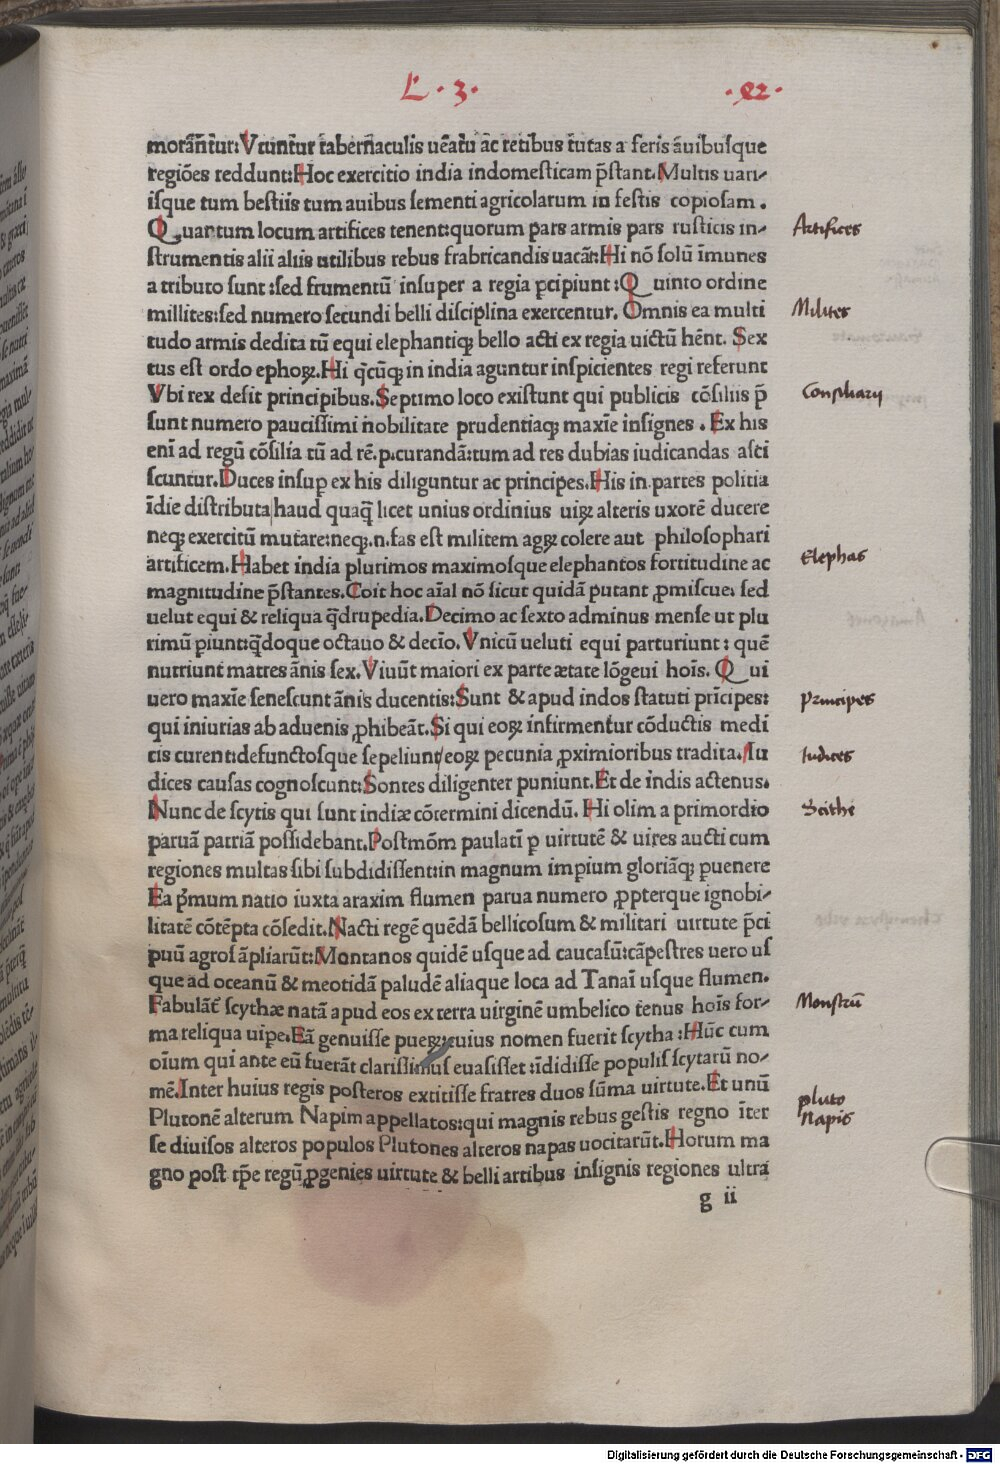 L · 3 ·
morāñtur: Vtuntur tabernaculis uēatu ac retibus tutas a feris auibusque
regiōes reddunt: Hoc exercitio india indomesticam p̄stant. Multis uari-
isque tum bestiis tum auibus sementi agricolarum in festis copiosam.
Quartum locum artifices tenent: quorum pars armis pars rusticis in-
Artifices
strumentis alii aliis utilibus rebus frabricandis uacāt: Hi nō solū īmunes
a tributo sunt: sed frumentū insuper a regia ꝑcipiunt: Quinto ordine
millites: sed numero secundi belli disciplina exercentur. Omnis ea multi
Milites
tudo armis dedita tū equi elephantiqꝫ bello acti ex regia uictū hēnt. Sex
tus est ordo ephoꝝ. Hi q̄cūqꝫ in india aguntur inspicientes regi referunt
Vbi rex desit principibus. Septimo loco existunt qui publicis cōsiliis p̄
Consiliarij
sunt numero paucissimi nobilitate prudentiaqꝫ maxīe insignes. Ex his
enī ad regū cōsilia tū ad rē.p.curandā: tum ad res dubias iudicandas asci
scuntur. Duces insuꝑ ex his diliguntur ac principes. His in partes politia
īdie distributa haud quaq̄ licet unius ordinius uiꝝ alteris uxorē ducere
neqꝫ exercitū mutare: neqꝫ.n.fas est militem agꝝ colere aut philosophari
artificem. Habet india plurimos maximosque elephantos fortitudine ac
Elephas
magnitudine p̄stantes. Coit hoc aīal nō sicut quidā putant ꝓmiscue: sed
uelut equi & reliqua q̄drupedia. Decimo ac sexto adminus mense ut plu
rimū piunt: q̄doque octauo & decīo. Vnicū ueluti equi parturiunt: quē
nutriunt matres ānis sex. Viuūt maiori ex parte ætate lōgeui hoīs. Qui
uero maxīe senescunt ānis ducentis: Sunt & apud indos statuti prīcipes:
Principes
qui iniurias ab aduenis ꝓhibeāt. Si qui eoꝝ infirmentur cōductis medi
cis curent: defunctosque sepeliunt eoꝝ pecunia ꝓximioribus tradita. Iu
Iudices
dices causas cognoscunt: Sontes diligenter puniunt. Et de indis actenus.
Nunc de scytis qui sunt indiæ cōtermini dicendū. Hi olim a primordio
Scithe
paruā patriā possidebant. Postmōm paulatī ꝑ uirtutē & uires aucti cum
regiones multas sibi subdidissent: in magnum imꝑium gloriāqꝫ ꝑuenere
Ea p̄mum natio iuxta araxim flumen parua numero ꝓpterque ignobi-
litatē cōtēpta cōsedit. Nacti regē quēdā bellicosum & militari uirtute p̄ci
puū agros āpliarūt: Montanos quidē usque ad caucasū: cāpestres uero us
que ad oceanū & meotidā paludē aliaque loca ad Tanaī usque flumen.
Fabulāt̄ scythæ natā apud eos ex terra uirginē umbelico tenus hoīs for-
Monstrū
ma reliqua uipe. Eā genuisse pueꝝ: cuius nomen fuerit scytha: Hūc cum
oīum qui ante eū fuerāt clarissimus euasisset: īdidisse populis scytarū no-
mē. Inter huius regis posteros extitisse fratres duos sūma uirtute. Et unū
Plutonē alterum Napim appellatos: qui magnis rebus gestis regno īter
pluto
Napis
se diuisos alteros populos Plutones alteros napas uocitarūt. Horum ma
gno post tp̄e regū ꝓgenies uirtute & belli artibus insignis regiones ultra
g ii
Digitalisierung gefördert durch die Deutsche Forschungsgemeinschaft - DFG